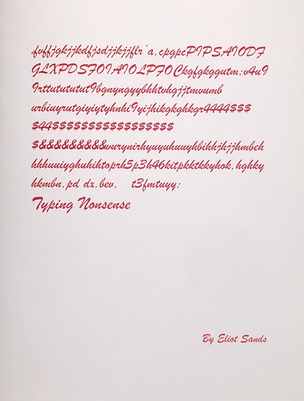 fvffjgkjjkdfjsdjjkjjflr'a.cpgpcPIPSAIODF
GLXPDSFOIAIOLPFOCkgfgkggutm;v4u9
9rttutututut9bgnyngyybhhtvhgjjtmvumb
urbiuyrutgiyiytyhuhi9yijhikgkghkgr4444$$$
$44$$$$$$$$$$$$$$$$$
$&&&&&&&&&vurynirhyuyuhuuyhbihhjhjjhmbeh
hhhuuiyghuhihtoprh5p3h46kitpkktkkyhok.hghky
hkmbn.pd dx.bev. t3fmtuyy;
Typing Nonsense
By Eliot Sands